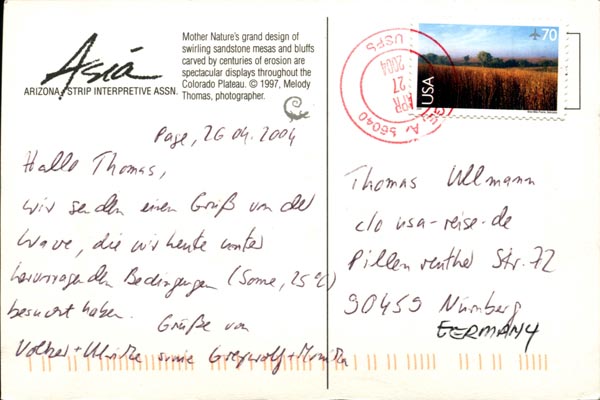 Asia
ARIZONA STRIP INTERPRETIVE ASSN.
Mother Nature's grand design of
swirling sandstone mesas and bluffs
carved by centuries of erosion are
spectacular displays throughout the
Colorado Plateau. © 1997, Melody
Thomas, photographer.
Page, 26.04.2004
Hallo Thomas,
wir senden einen Gruß von der
Wave, die wir heute unter
hervorragenden Bedingungen (Sonne, 25°C)
besucht haben.
Grüße von
Volker + Ulrike sowie Greywolf + Monika
USPS
2004
27
APR
86040
USA
70
Thomas Ullmann
c/o usa-reise.de
Pillenreuther Str. 72
90459 Nürnberg
GERMANY